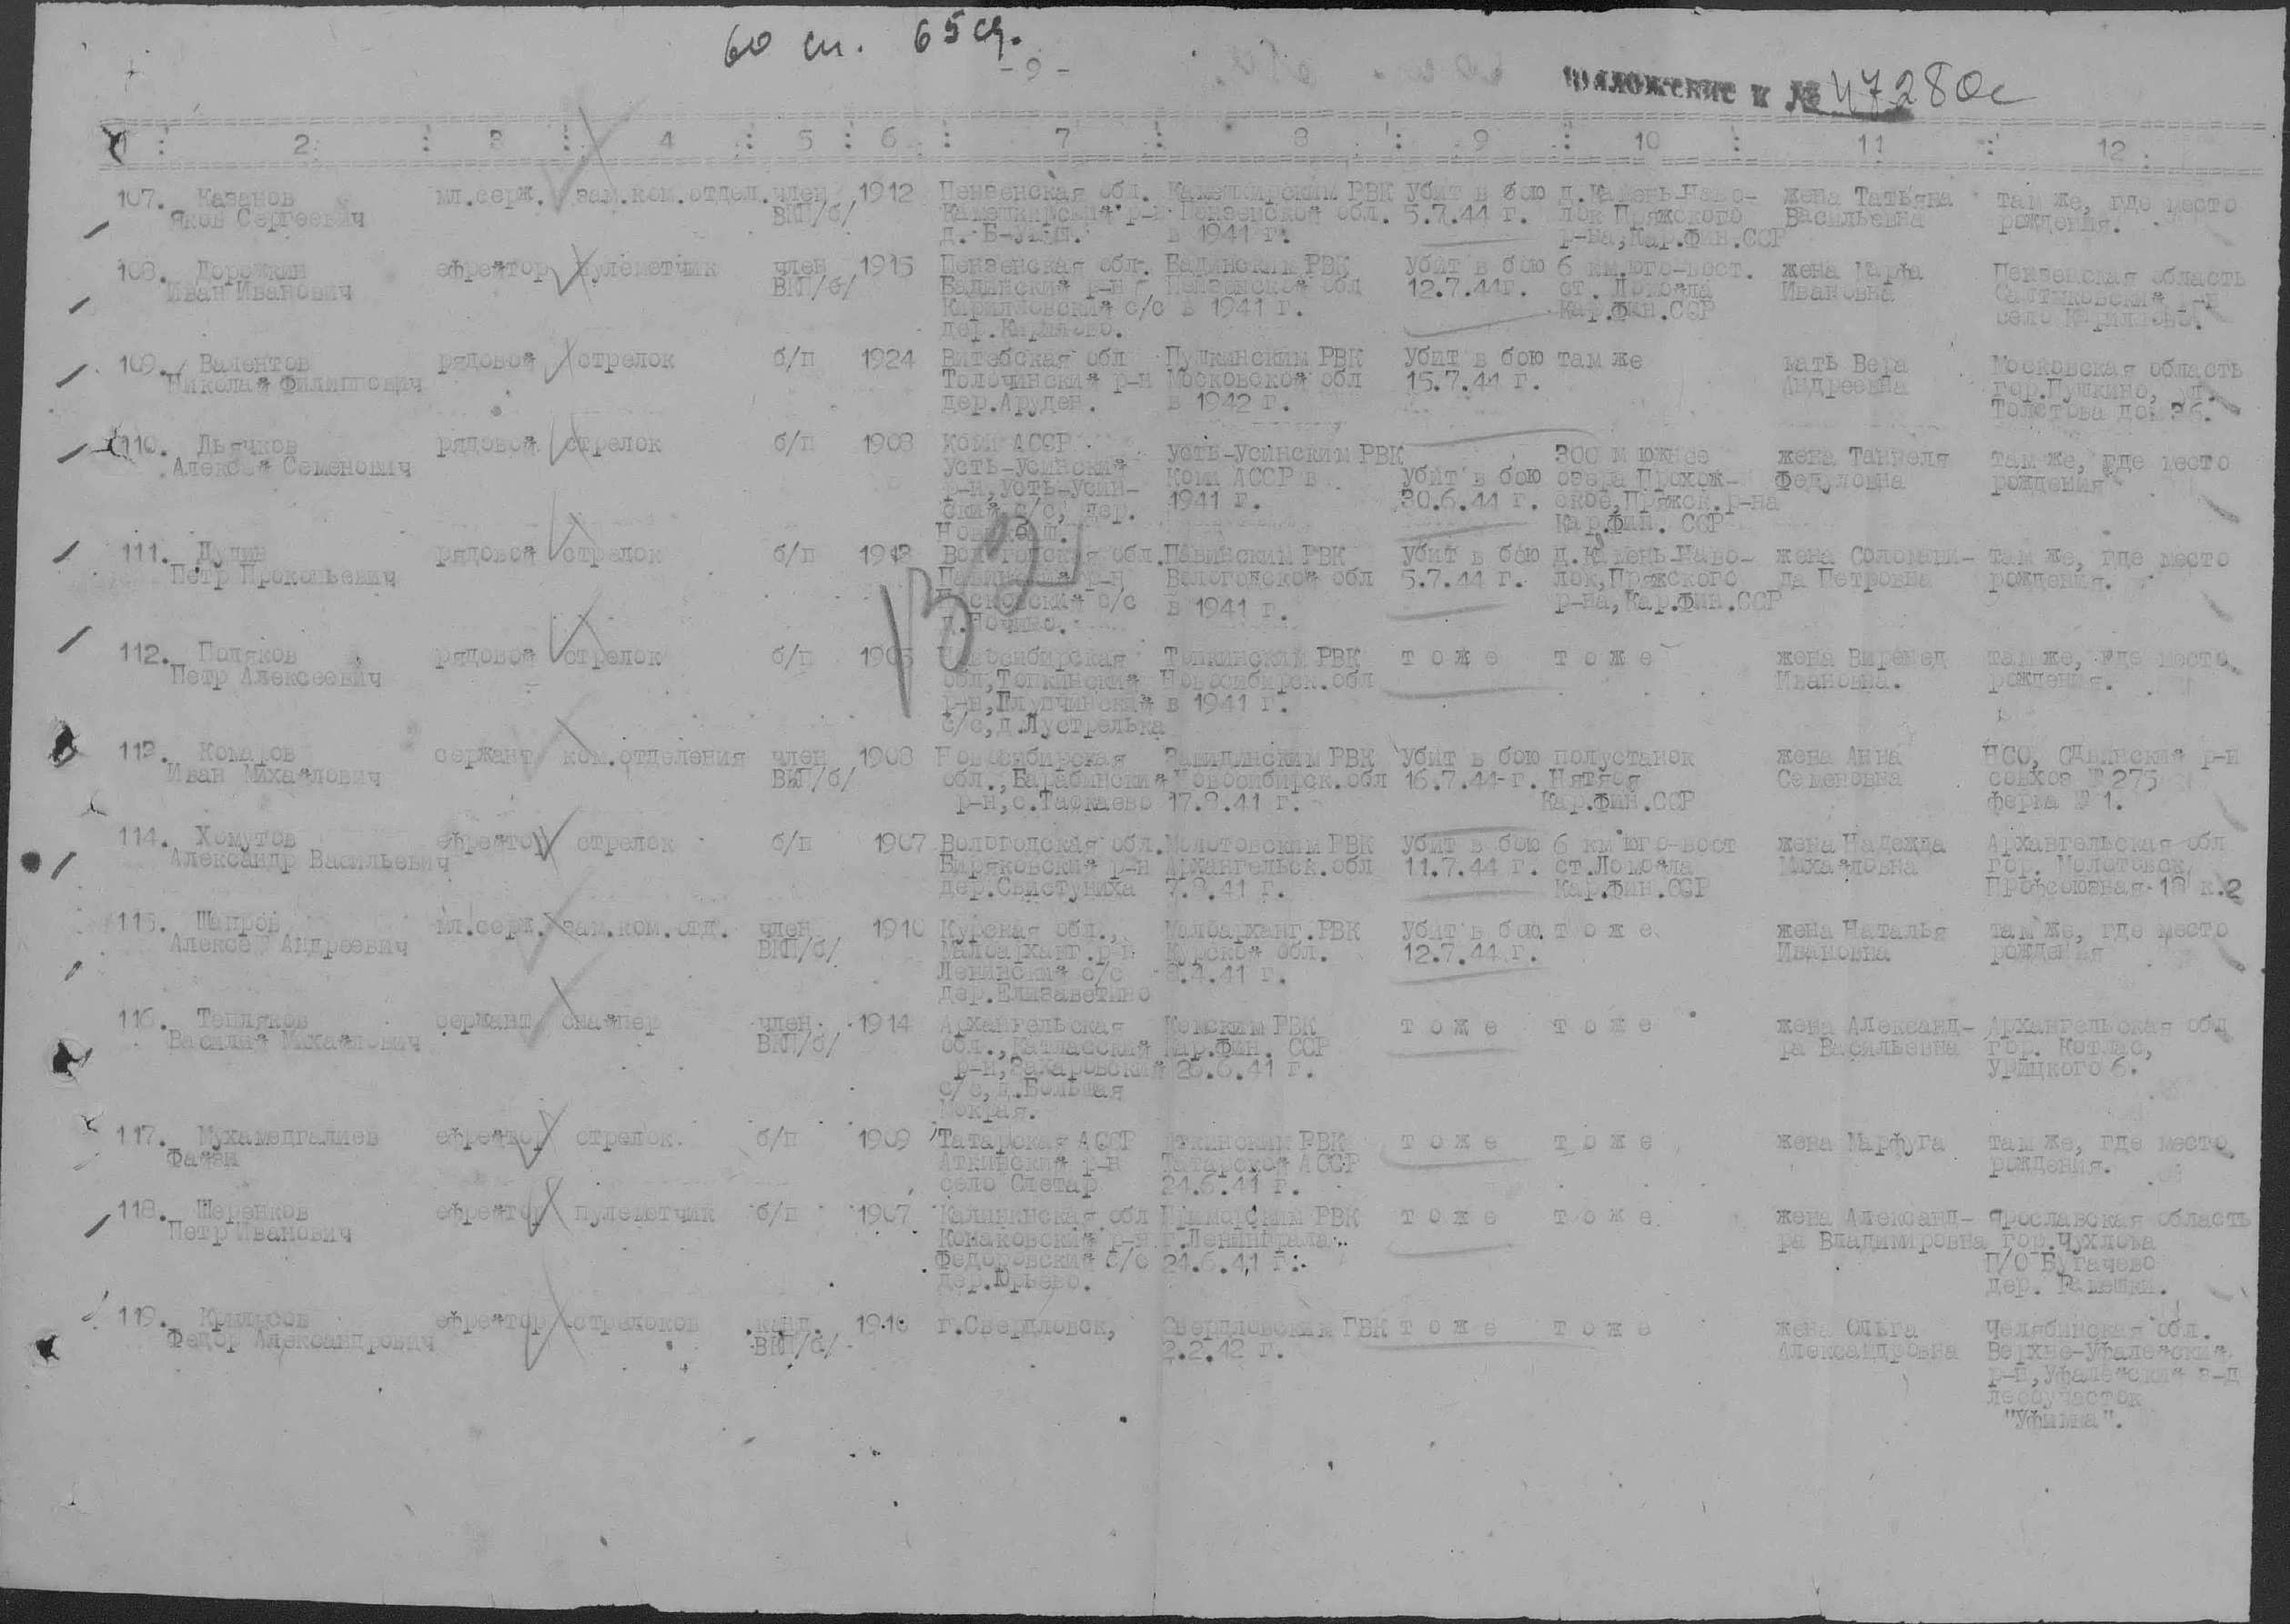 60 сп. 65 сд.
- 9 -
приложение к № 47280с
2 3 4 5 6 7 8 9 10 11 12
107. Казанов мл.серж. зам.ком.отдел. член 1912 Пензенская обл. Камешкирским РВК убит в бою д.Камень-Наво- жена Татьяна там же, где место
Яков Сергеевич ВКП/б/ Камешкирский р-н Пензенской обл. 5.7.44 г. лок Пряжского Васильевна рождения.
в 1941 г. р-на,Кар.Фин.ССР
108. Дорожкин ефрейтор пулеметчик член 1915 Пензенская обл. Бадинским РВК убит в бою 6 км.юго-вост. жена Марфа Пензенская область
Иван Иванович ВКП/б/ Бадинский р-н Пензенской обл 12.7.44г. ст. Ивановна Салтыковский р-н
с/с в 1941 г. Кар.Фин.ССР село
дер.
109. Валентов рядовой стрелок б/п 1924 Витебская обл Пушкинским РВК убит в бою там же мать Вера Московская область
Николай Филиппович Толочинский р-н Московской обл 15.7.44 г. Андреевна гор.Пушкино, ул.
дер.Аруден. в 1942 г. Толстова дом 36.
110. Дьячков рядовой стрелок б/п 1908 Коми АССР усть-усинским РВК 300 м южнее жена Таннеля там же, где место
Алексей Семенович усть-усинский Коми АССР в убит в бою озера Прохож- Федуловна рождения
р-н,усть-усин- 1941 г. 30.6.44 г. ское,Пряжск.р-на
ский с/с, дер. Кар.Фин. ССР
111. Дудин рядовой стрелок б/п Вологодская обл. Павинским РВК убит в бою д.Камень-Наво- жена Соломани- там же, где место
Петр Прокопьевич Павинский р-н Вологодской обл 5.7.44 г. лок,Пряжского да Петровна рождения.
с/с в 1941 г. р-на,Кар.Фин.ССР
112. Поляков рядовой стрелок б/п Новосибирская Топкинским РВК т о ж е т о ж е жена там же, где место
Петр Алексеевич обл,Топкинский Новосибирск.обл Ивановна. рождения.
р-н, в 1941 г.
с/с,д.Лустрелька
113. Комаров сержант ком.отделения член 1908 Новосибирская РВК убит в бою полустанок жена Анна НСО, р-н
Иван Михайлович ВКП/б/ обл.,Барабинский Новосибирск.обл 16.7.44 г. Нятяоя Семеновна совхоз № 275
р-н,с.Таскаево 17.9.41 г. Кар.Фин.ССР ферма № 1.
114. Хомутов ефрейтор стрелок б/п 1907 Вологодская обл. Молотовским РВК убит в бою 6 км юго-вост жена Надежда Архангельская обл
Александр Васильевич Биряковский р-н Архангельск.обл 11.7.44 г. ст.Ломойла Михайловна гор. Молотовск
дер.Свистуниха 7.9.41 г. Кар.Фин.ССР Профсоюзная 18 к.2
115. Шапров мл.серж. зам.ком.отд. член 1910 Курская обл., Малоарханг.РВК убит в бою т о ж е жена Наталья там же, где место
Алексей Андреевич ВКП/б/ Малоарханг.р-н Курской обл. 12.7.44 г. Ивановна рождения
Ленинский с/с 8.4.41 г.
дер.Елизаветино
116. Тепляков сержант снайпер член 1914 Архангельская Кемским РВК т о ж е т о ж е жена Александ- Архангельская обл
Василий Михайлович ВКП/б/ обл.,Катласский Кар.Фин. ССР ра Васильевна гор. Котлас,
р-н,Захаровский 26.6.41 г. Урицкого 6.
с/с,д.Большая
Мокрая.
117. Мухамедгалиев ефрейтор стрелок. б/п 1909 Татарская АССР Аткинским РВК т о ж е т о ж е жена Марфуга там же, где место
Файзи Аткинский р-н Татарской АССР рождения.
село Слетар 24.6.41 г.
118. Шеренков ефрейтор пулеметчик б/п 1907 Калининская обл Приморским РВК т о ж е т о ж е жена Александ- Ярославская область
Петр Иванович Конаковский р-н г.Ленинграда ра Владимировна гор.Чухлома
Федоровский с/с 24.6.41 г. П/О Бугачево
дер.Юрьево. дер. Рамешки.
119. Крыльсов ефрейтор стрелоков канд. 1910 г.Свердловск, Свердловским ГВК т о ж е т о ж е жена Ольга Челябинская обл.
Федор Александрович ВКП/б/ 2.2.42 г. Александровна Верхне-Уфалейский
р-н,Уфалейский з-д
лесоучасток
"Уфимка".